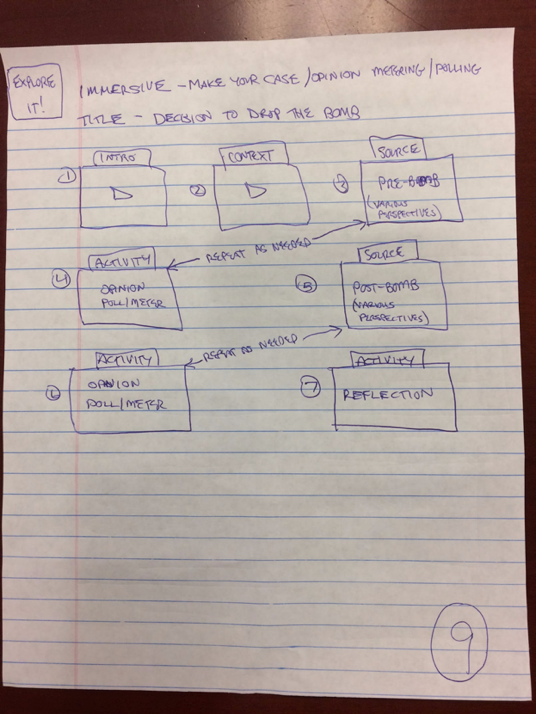 EXPLORE
IT!
IMMERSIVE - MAKE YOUR CASE / OPINION METERING / POLLING
TITLE - DECISION TO DROP THE BOMB
INTRO
CONTEXT
SOURCE
1
2
3
PRE-BOMB
(VARIOUS
PERSPECTIVES)
REPEAT AS NEEDED
ACTIVITY
SOURCE
4
OPINION
POLL/METER
5
POST-BOMB
(VARIOUS
PERSPECTIVES)
REPEAT AS NEEDED
ACTIVITY
ACTIVITY
6
OPINION
POLL/METER
7
REFLECTION
9